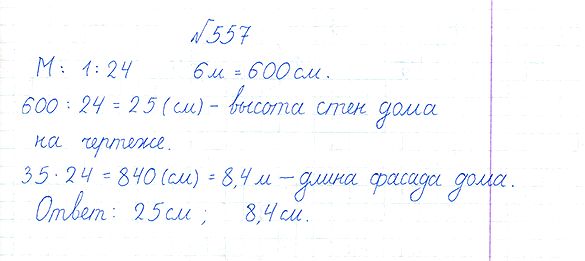 №557
М: 1:24 6м = 600см.
600 : 24 = 25 (см) - высота стен дома
на чертеже.
35 · 24 = 840 (см) = 8,4 м - длина фасада дома.
Ответ: 25см ; 8,4см.